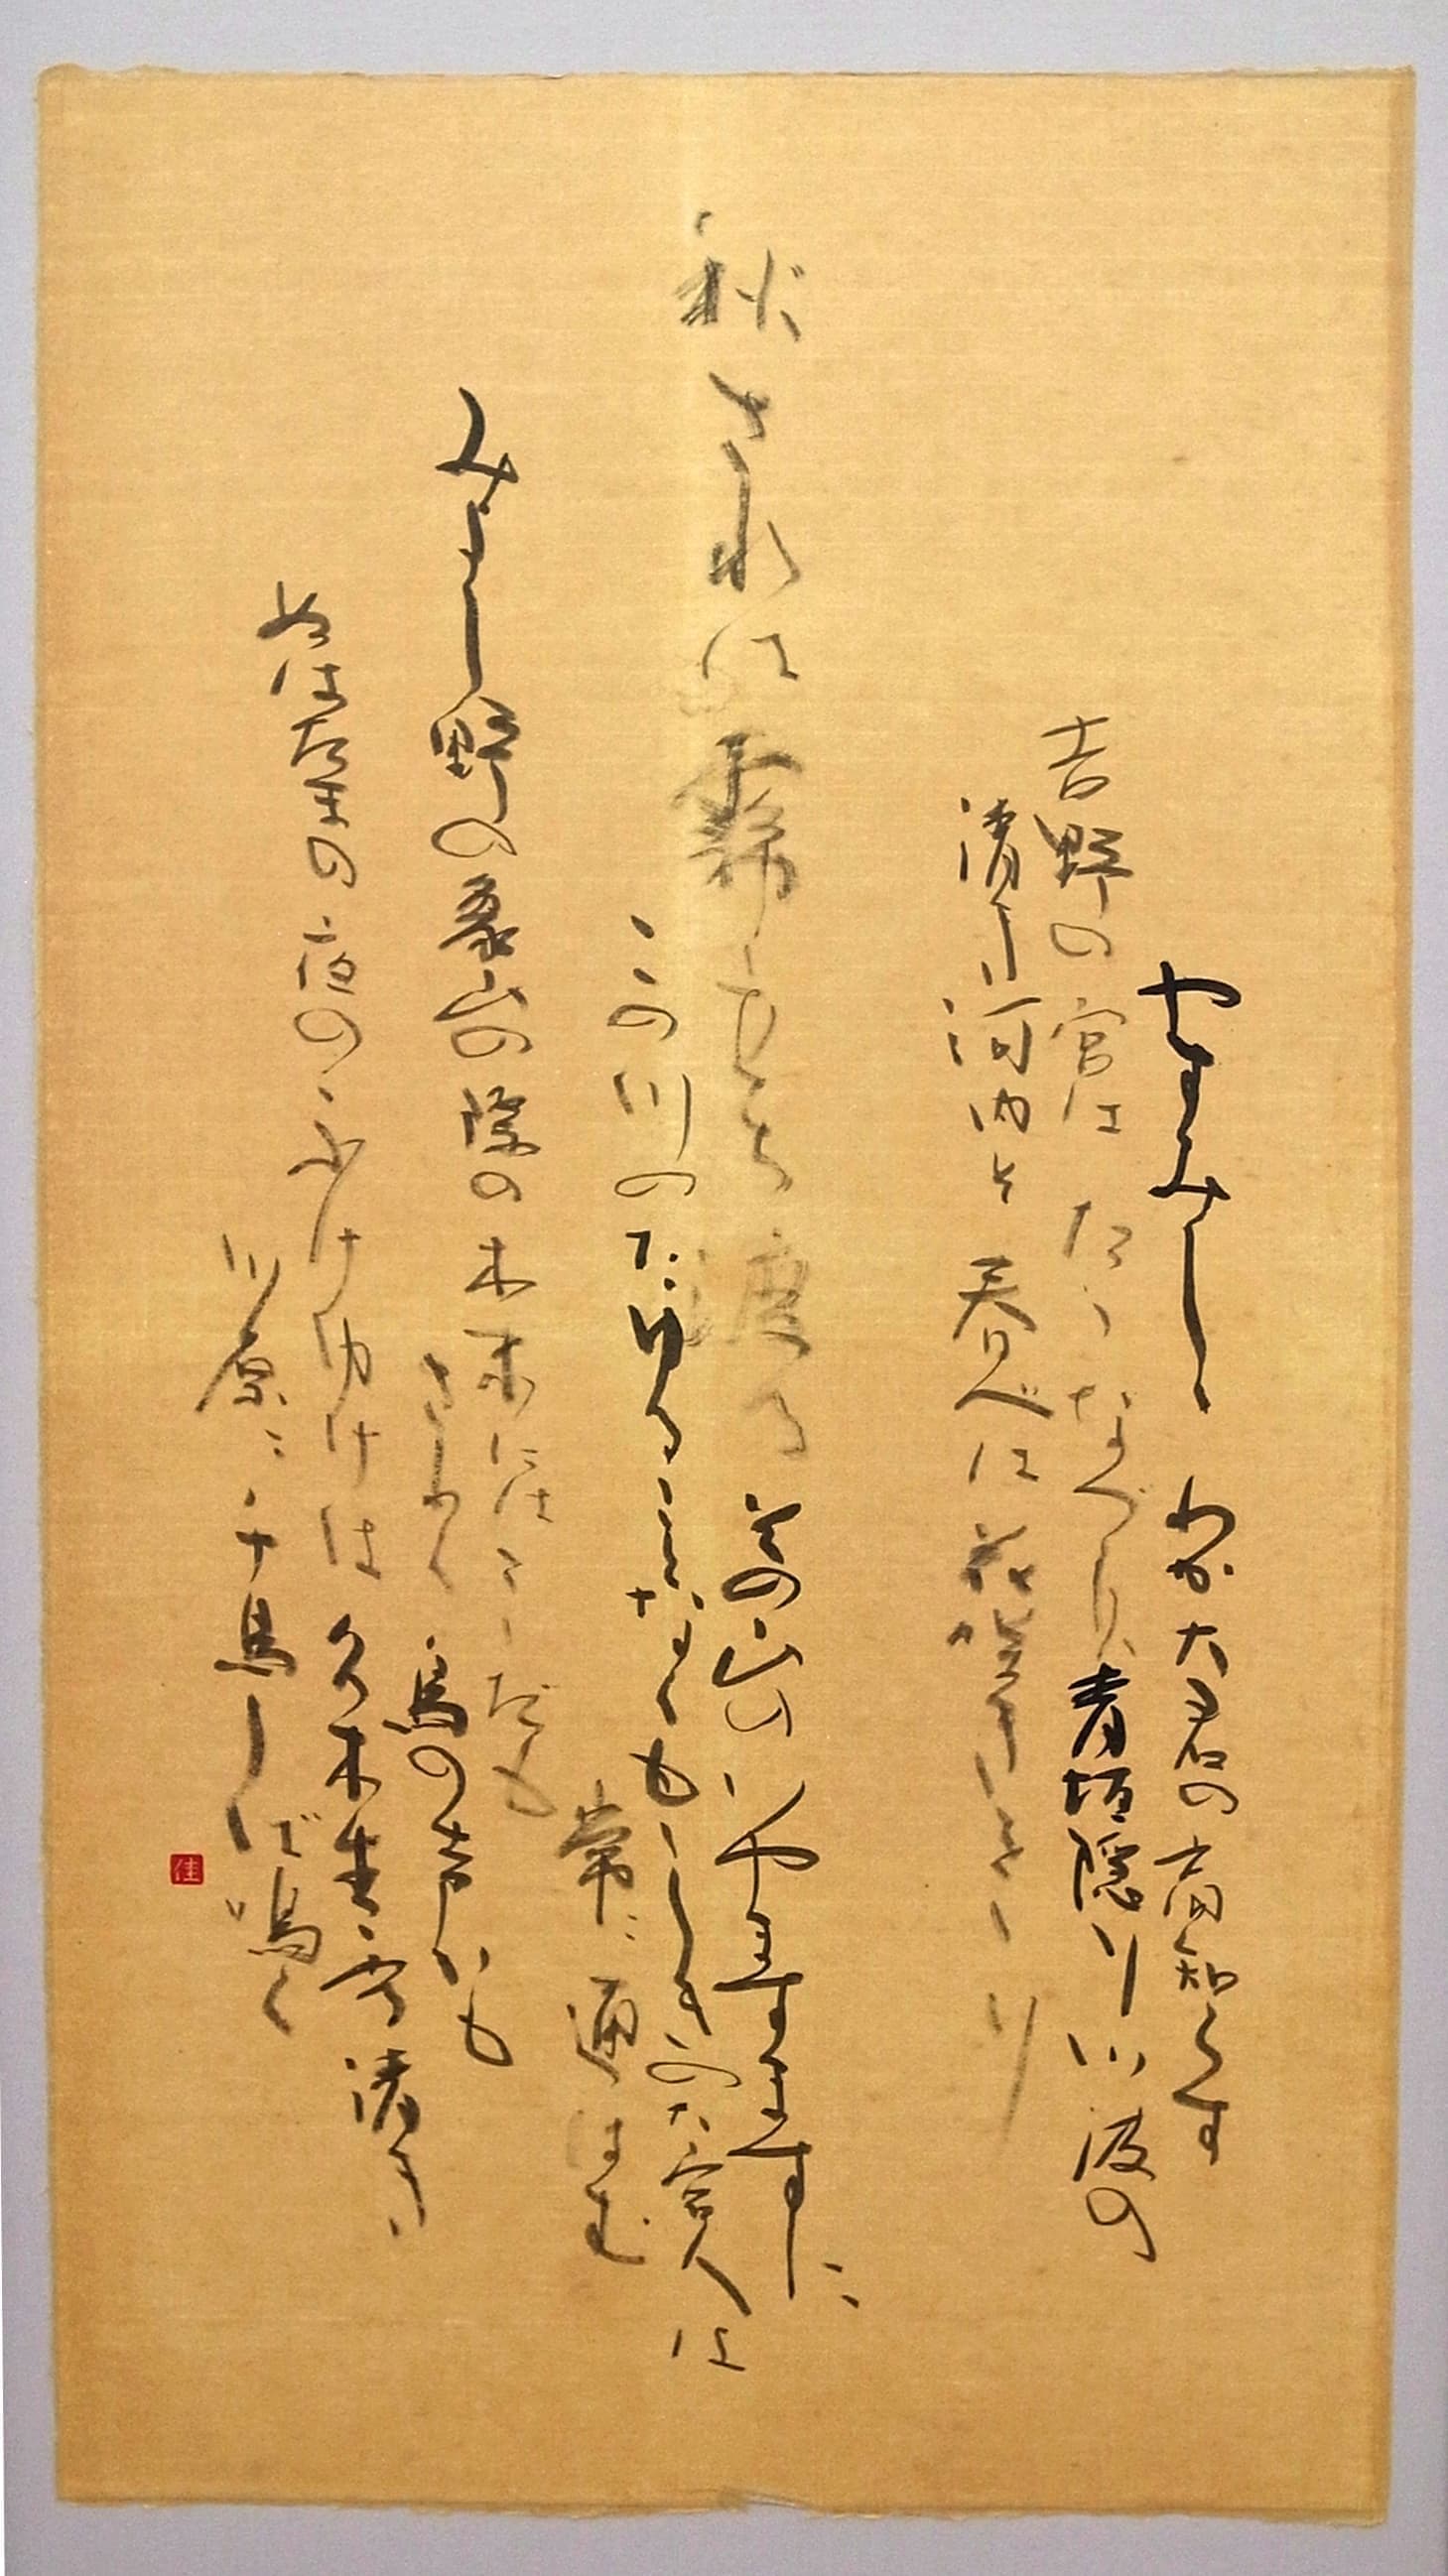 やすみしゝ わが大君の高知らす
吉野の宮は たゝなべり 青垣隠り 川波の
清き河内そ 春べは 花咲きをゝり
秋されは霧立ち渡る その山の いやますますに
この川の たゆることなく もゝしきの 大宮人は
常に 通はむ
みよし野の象山の際の木末には こゝだも
さわく 鳥の声かも
ぬばたまの夜の ふけゆけは 久木生ふる 清き
川原に 千鳥しば鳴く
佳